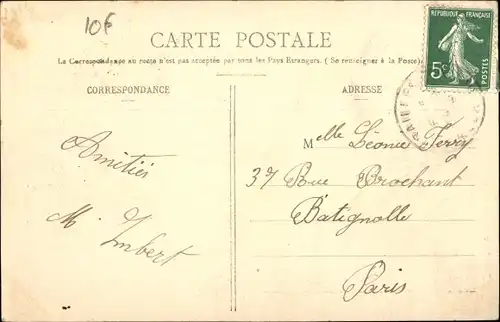 10f
CARTE POSTALE
La Correspondance au recto n'est pas acceptée par tous les Pays Etrangers. (Se renseigner à la Poste)
REPUBLIQUE FRANÇAISE
5c
POSTES
CORRESPONDANCE
ADRESSE
Amitiés
M. Imbert
Melle Léonie Ferry
37 Rue Brochant
Batignolle
Paris